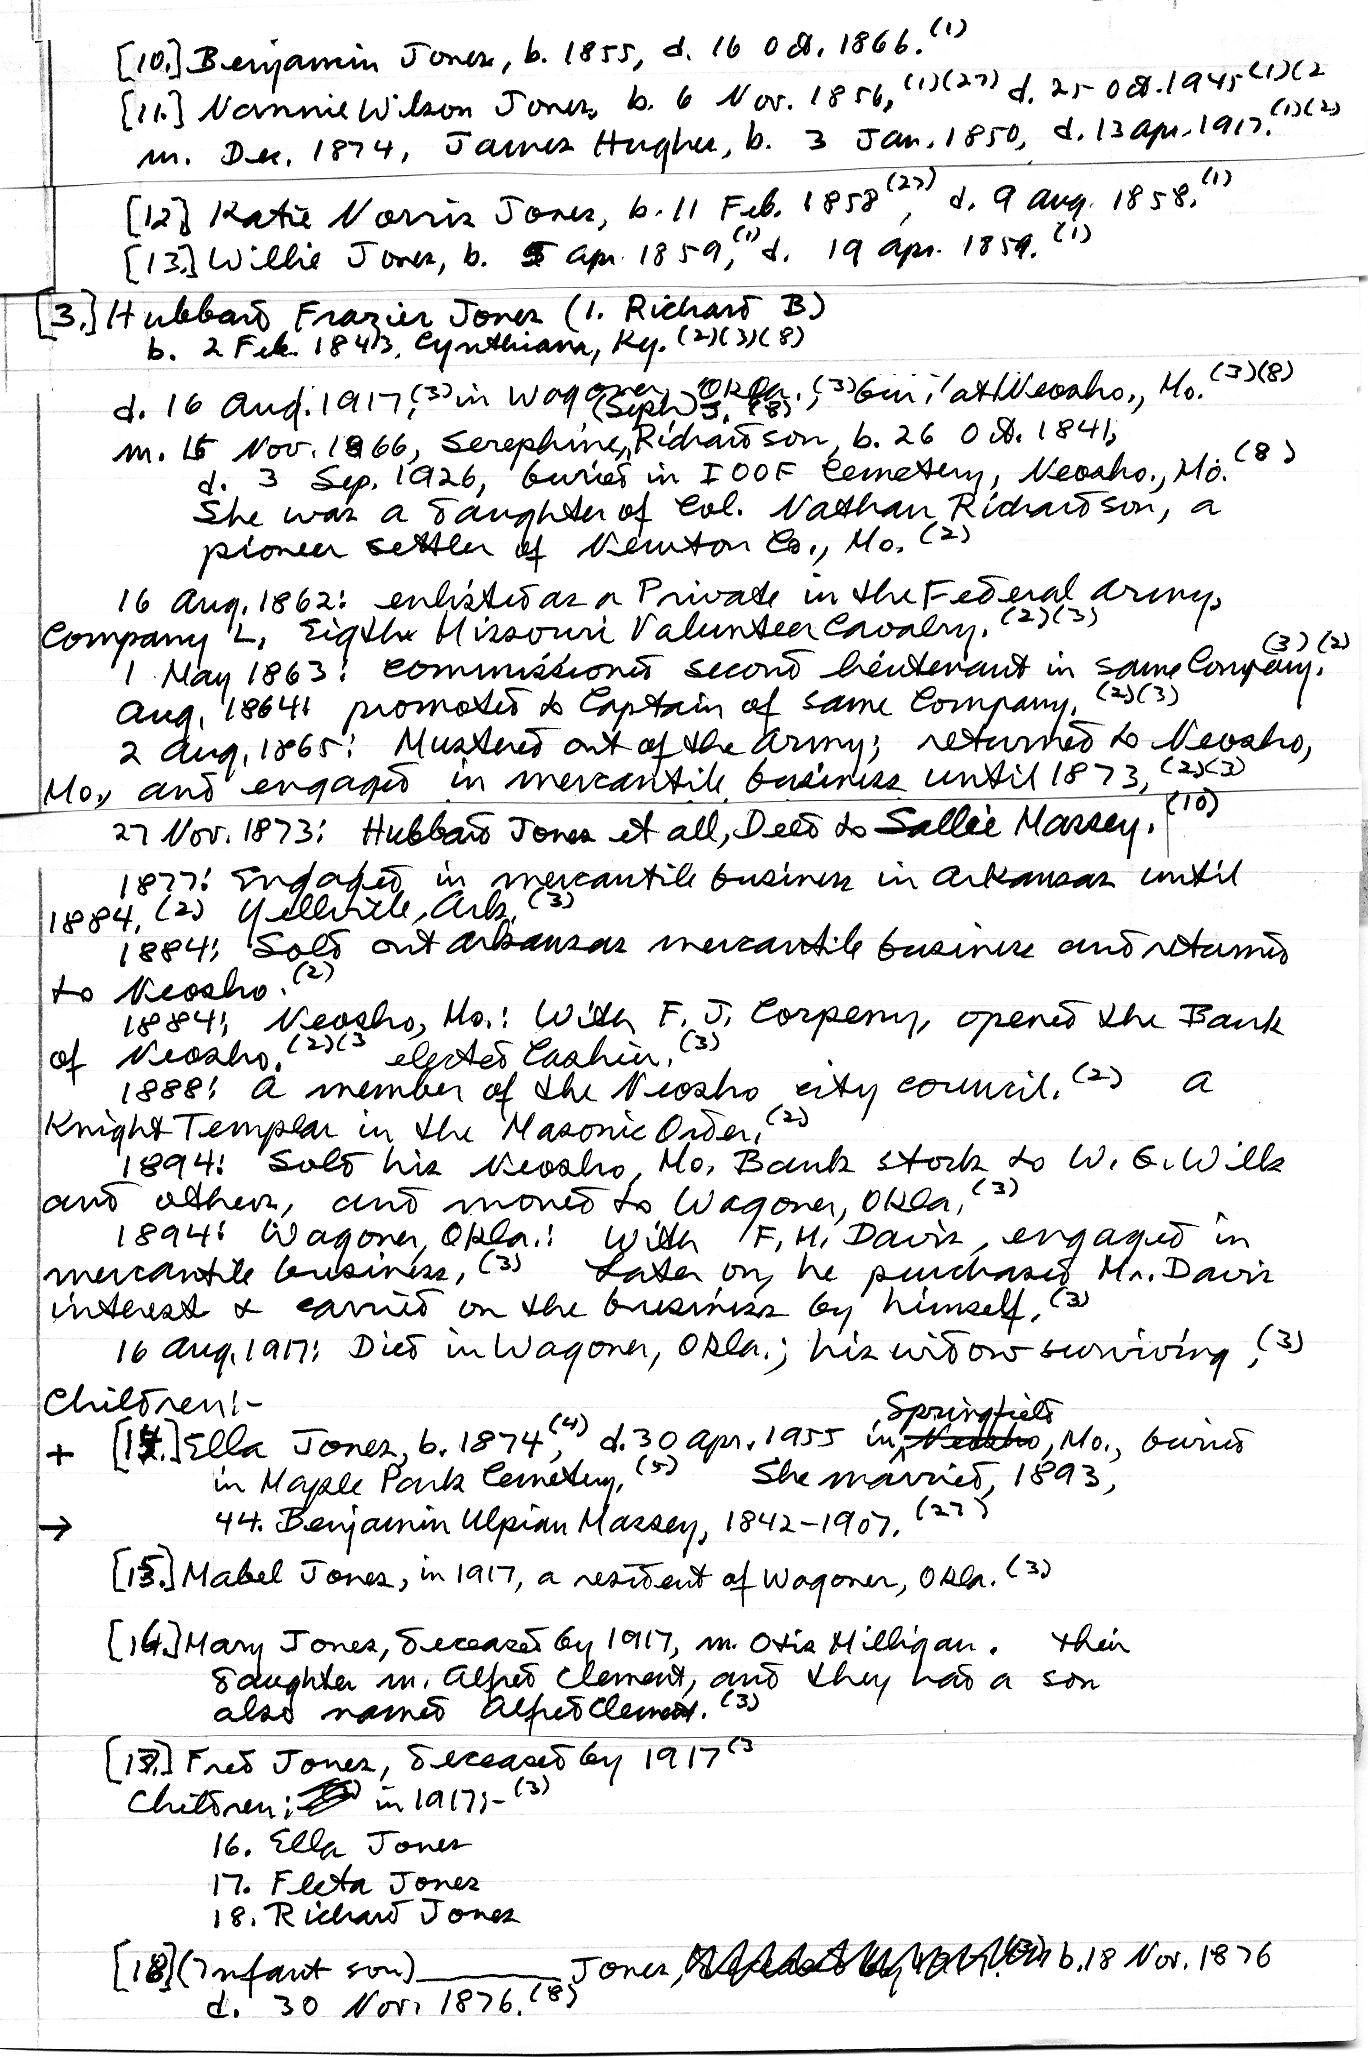 [10.] Benjamin Jones, b. 1855, d. 16 Oct. 1866.(1)
[11.] Nannie Wilson Jones, b. 6 Nov. 1856,(1)(27) d. 25 Oct. 1945(1)(2
m. Dec. 1874, James Hughes, b. 3 Jan. 1850, d. 13 Apr. 1917.(1)(2)
[12.] Katie Norris Jones, b. 11 Feb. 1858(27), d. 9 Aug. 1858.(1)
[13.] Willie Jones, b. 5 Apr. 1859,(1) d. 19 Apr. 1859.(1)
[3.] Hubbard Frazier Jones (1. Richard B)
b. 2 Feb. 1843, Cynthiana, Ky. (2)(3)(8)
d. 16 Aug. 1917,(3) in Wagoner, Okla.,(3) buri! at Neosho., Mo.(3)(8)
(Seph) J. (8)
m. 15 Nov. 1866, Serephine, Richardson, b. 26 Oct. 1841,
d. 3 Sep. 1926, buried in IOOF Cemetery, Neosho., Mo.(8)
She was a daughter of Col. Nathan Richardson, a
pioneer settler of Newton Co., Mo.(2)
16 Aug. 1862: enlisted as a Private in the Federal Army,
Company L, Eigthe Missouri Valunteer Cavalry.(2)(3)
1 May 1863: commissioned second lieutenant in same Company.(3)(2)
Aug. 1864: promoted to Captain of same Company.(2)(3)
2 Aug. 1865: Mustered out of the Army; returned to Neosho,
Mo., and engaged in mercantile business until 1873,(2)(3)
27 Nov. 1873: Hubbard Jones et all, Deed to Sallie Massey.(10)
1877: Engaged in mercantile business in Arkansas until
1884.(2) Yellville, Ark.(3)
1884: Sold out Arkansas mercantile business and returned
to Neosho.(2)
1884: Neosho, Mo.: With F. J. Corpeny, opened the Bank
of Neosho.(2)(3 elected Cashier.(3)
1888: A member of the Neosho city council.(2) A
Knight Templar in the Masonic Order.(2)
1894: Sold his Neosho, Mo. Bank stock to W. G. Wills
and others, and moved to Wagoner, Okla.(3)
1894: Wagoner, Okla.: With F. M. Davis, engaged in
mercantile business,(3) Later on, he purchased Mr. Davis
interest & carried on the business by himself.(3)
16 Aug. 1917: Died in Wagoner, Okla.; his widow surviving,(3)
Children:-
+ [14.] Ella Jones, b. 1874,(4) d. 30 Apr. 1955 in Springfield Neosho, Mo., buried
in Maple Park Cemetery.(5) She married, 1893,
→ 44. Benjamin Ulpian Massey, 1842-1907.(27)
[15.] Mabel Jones, in 1917, a resident of Wagoner, Okla.(3)
[16.] Mary Jones, deceased by 1917, m. Otis Milligan. Their
daughter m. Alfred Clement, and they had a son
also named Alfred Clement.(3)
[17.] Fred Jones, deceased by 1917(3
Children: in 1917:-(3)
16. Ella Jones
17. Fleta Jones
18. Richard Jones
[18] (Infant son) ________ Jones, b. 18 Nov. 1876
d. 30 Nov. 1876.(8)